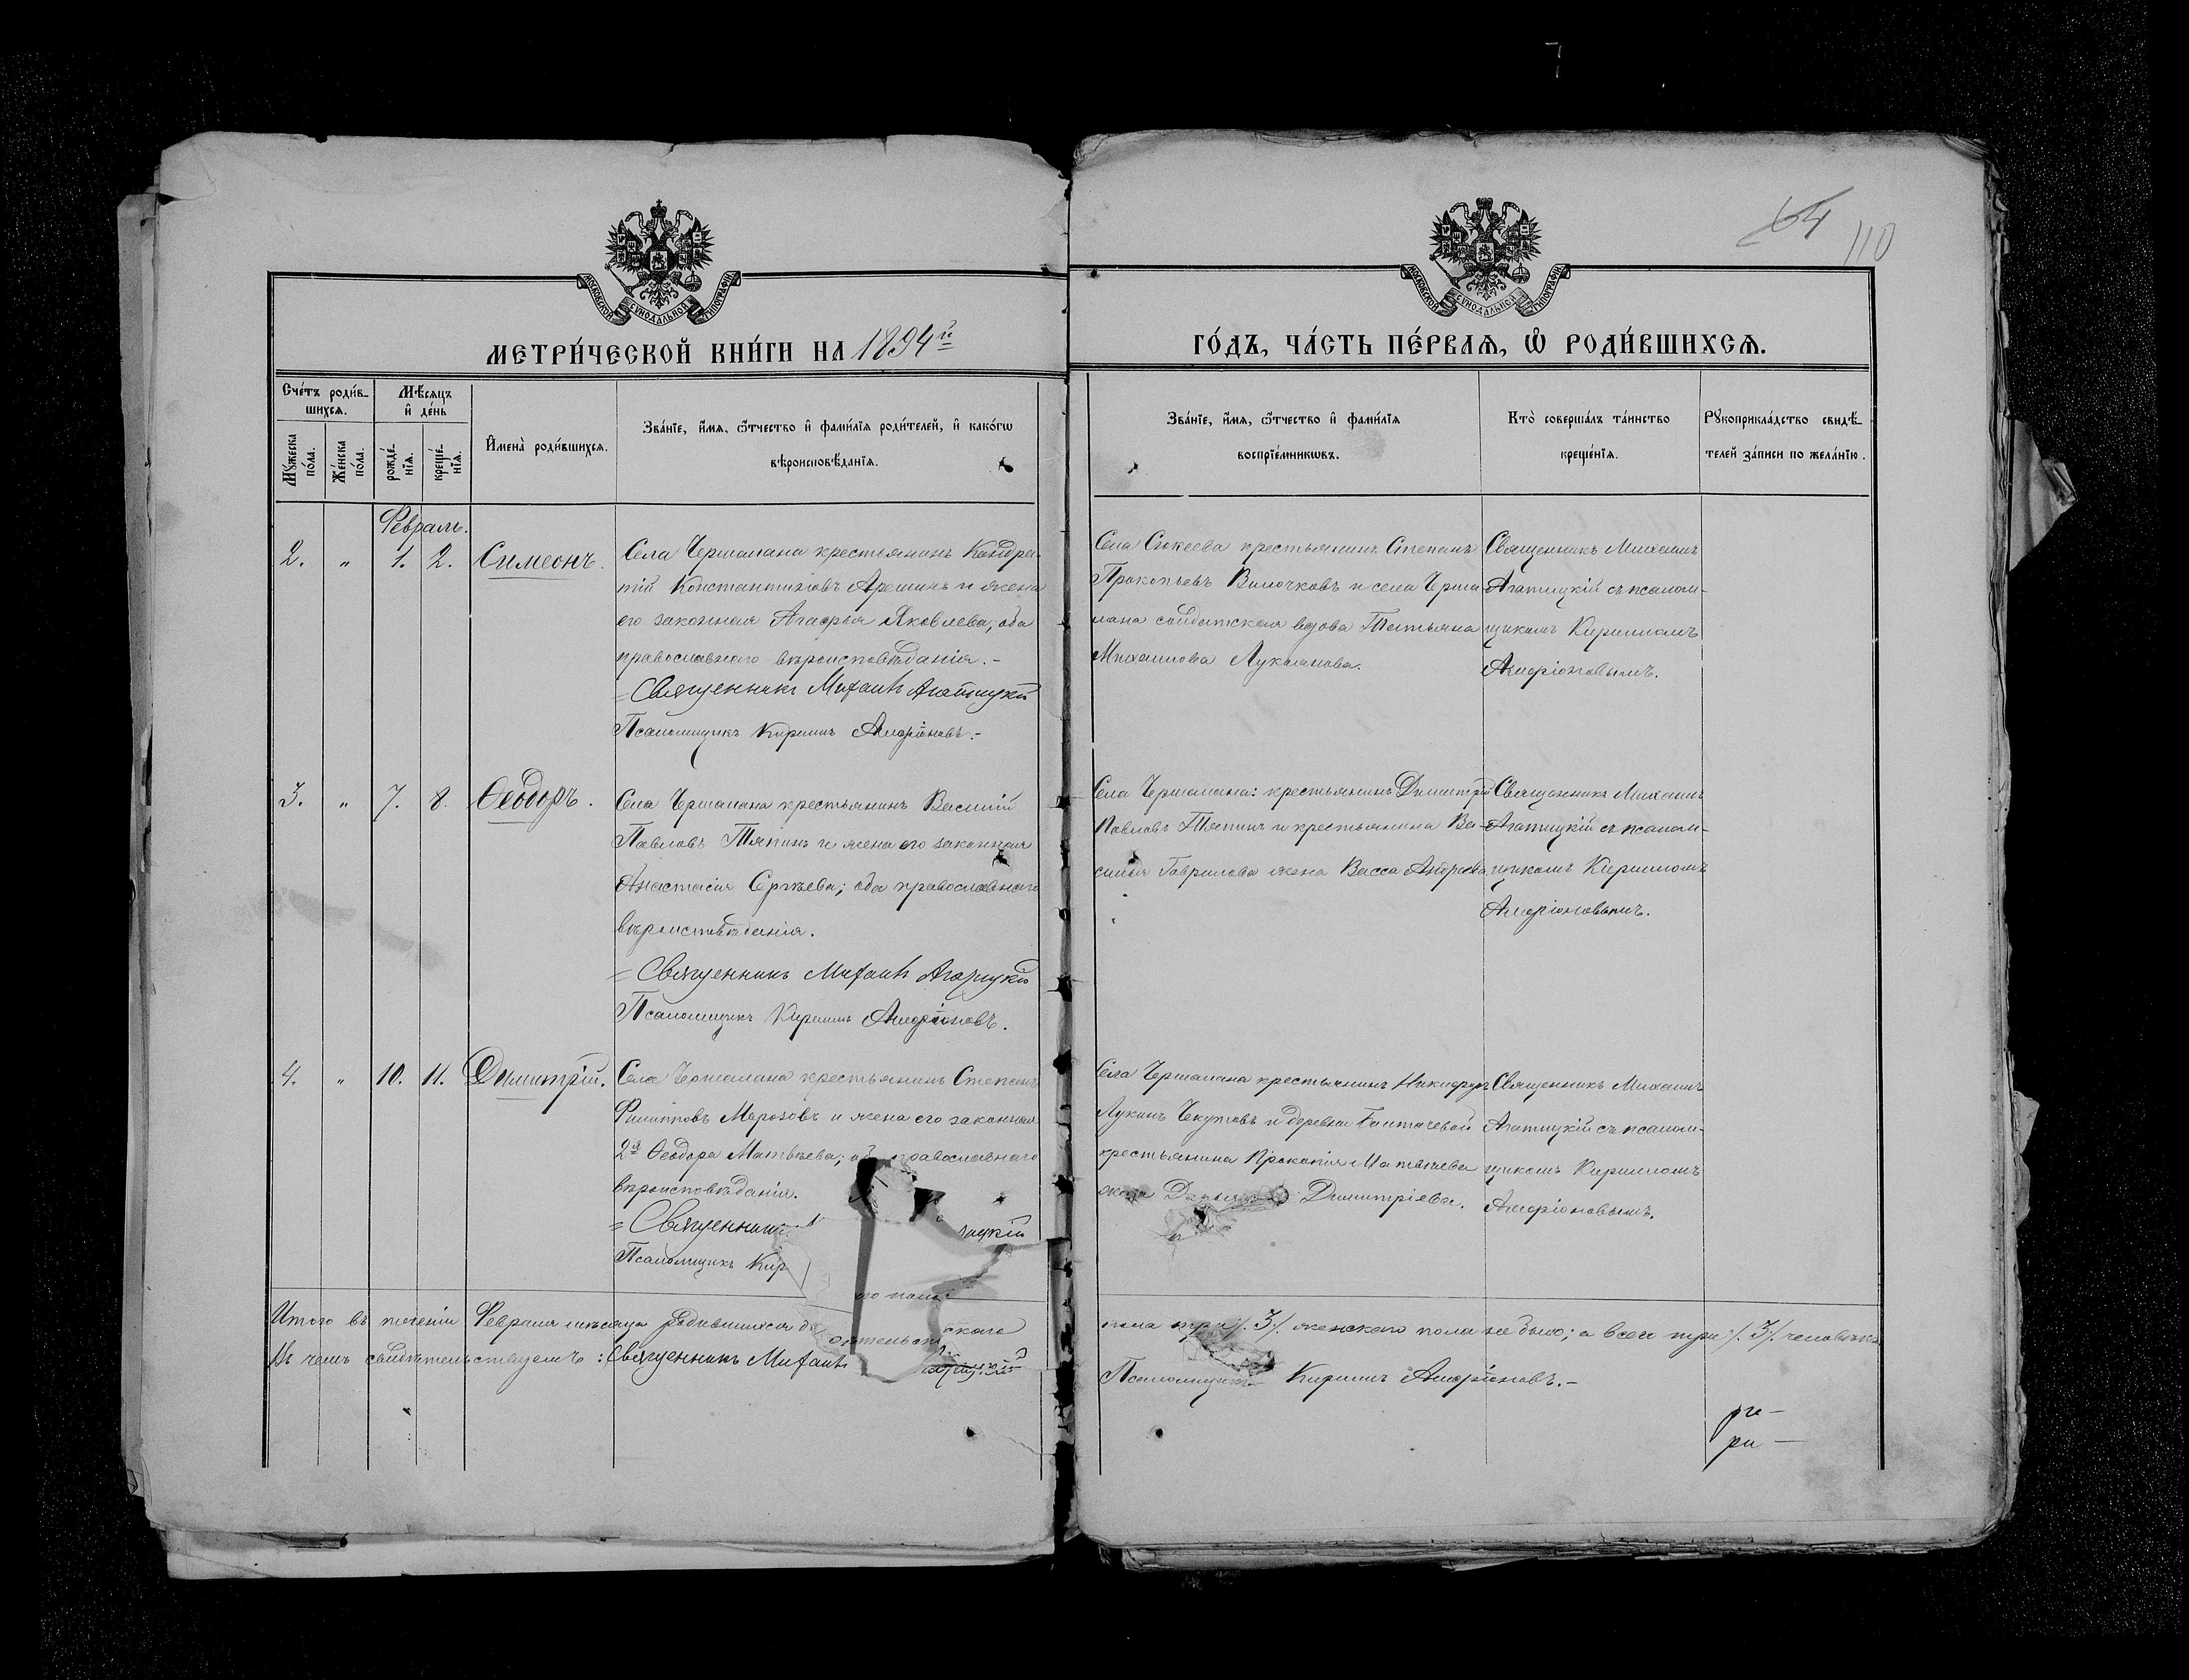 64
110
МОСКОВСКОЙ СѴНОДАЛЬНОЙ ТИПОГРАФІИ
МОСКОВСКОЙ СѴНОДАЛЬНОЙ ТИПОГРАФІИ
МЕТРИ́ЧЕСКОЙ КНИ́ГИ НА 1894й
ГО́ДЪ, ЧА́СТЬ ПЕ́РВАѦ, Ѡ҆ РОДИ́ВШИХСѦ.
Сче́тъ роди́в-
шихсѧ.
Мꙋ́жеска по́ла.
Же́нска по́ла.
Мѣ́сѧцъ
и҆ де́нь
рожде́-
нїѧ.
креще́-
нїѧ.
И҆мена̀ роди́вшихсѧ.
Зва́нїе, и҆́мѧ, ѻ҆́тчество и҆ фамѝлїѧ роди́телей, и҆ како́гѡ
вѣроисповѣ́данїѧ.
Зва́нїе, и҆́мѧ, ѻ҆́тчество и҆ фами́лїѧ
воспрїе́мникѡвъ.
Кто̀ соверша́лъ та́инство
креще́нїѧ.
Рꙋкоприкла́дство свидѣ́-
телей за́писи по жела́нїю.
Февраль.
2. „ 1. 2. Симеонъ.
Села Чершалана крестьянинъ Кондра-
тій Константиновъ Арешинъ и жена
его законная Агафья Яковлева; оба
православнаго вѣроисповѣданія.-
= Священникъ Михаилъ Агатицкій
Псаломщикъ Кириллъ Амфіоновъ.-
Села Сюкеева крестьянинъ Степанъ
Прокопьевъ Вилочковъ и села Черша-
лана солдатская вдова Татьяна
Михаилова Лукоянова.
Священникъ Михаилъ
Агатицкій съ псалом-
щикомъ Кирилломъ
Амфіоновымъ.
3. „ 7. 8. Ѳеодоръ.
Села Чершалана крестьянинъ Василій
Павловъ Тяпинъ и жена его законная
Анастасія Сергѣева; оба православнаго
вѣроисповѣданія.
= Священникъ Михаилъ Агатицкій
Псаломщикъ Кириллъ Амфіоновъ.
Села Чершалана: крестьянинъ Димитрій
Павловъ Тяпинъ и крестьянина Ва-
силья Гаврилова жена Васса Андреева
Священникъ Михаилъ
Агатицкій съ псалом-
щикомъ Кирилломъ
Амфіоновымъ.
4. „ 10. 11. Димитрій.
Села Чершалана крестьянинъ Степанъ
Филипповъ Морозовъ и жена его законная
2я Ѳеодора Матвѣева; православнаго
вѣроисповѣданія.
= Священникъ
Псаломщикъ Кир
Села Чершалана крестьянинъ Никифоръ
Лукинъ и деревни
крестьянина Прокопія Матвѣева
жена Димитріева.
Священникъ Михаилъ
Агатицкій съ псалом-
щикомъ Кирилломъ
Амфіоновымъ.
Итого въ теченіи Февраля мѣсяца родившихся
пола три /3/. женскаго пола не было; а всего три /3/ человѣка
Въ чемъ свидѣтельствуемъ: Священникъ Михаилъ
Псаломщикъ Кириллъ Амфіоновъ.-